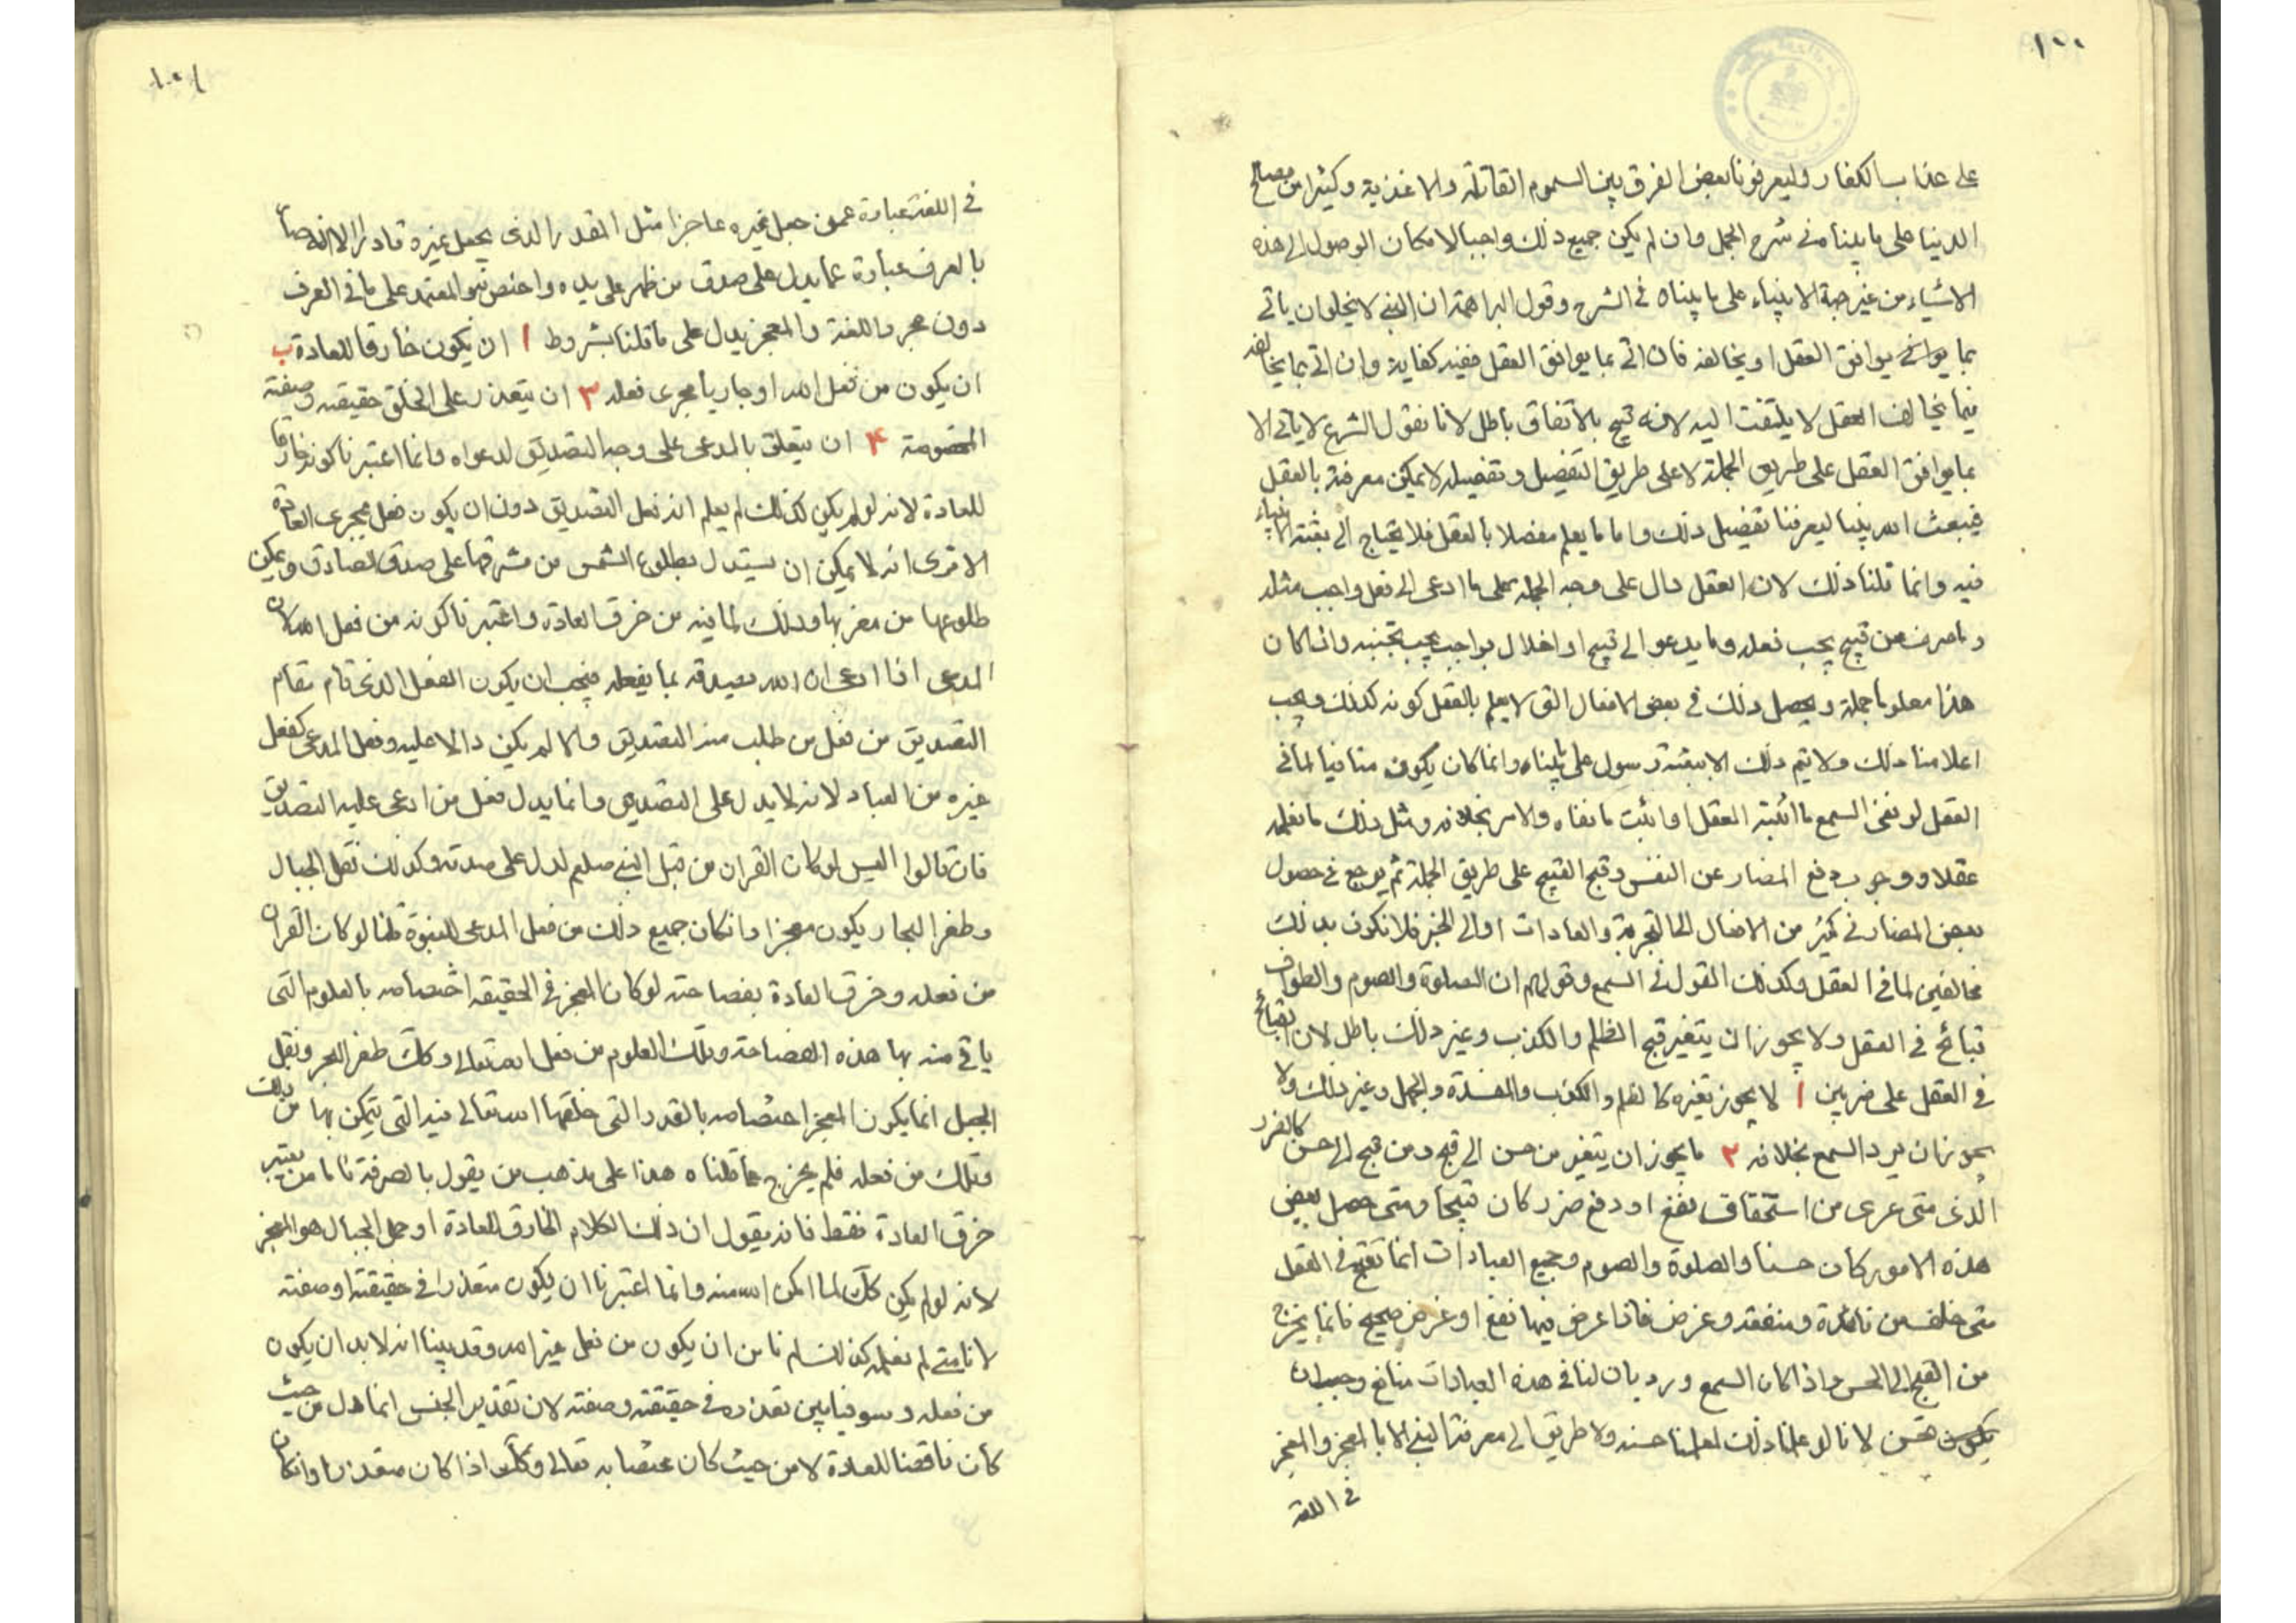 ١٠٠
على عذاب الكفار وليعرفونا بعض الفرق بين السموم القاتلة والاغذية وكثيرا من مصالح
الدنيا على ما بيناه في شرح الجمل وان لم يكن جميع ذلك واجبا لامكان الوصول الى هذه
الاشياء من غير جهة الانبياء على ما بيناه في الشرح وقول البراهمة ان النبي لا يخلو ان ياتي
بما يوافق العقل او يخالفه فان اتى بما يوافق العقل ففيه كفاية وان اتى بما يخالفه
فيما يخالف العقل لا يلتفت اليه لانه قبيح بالاتفاق باطل لانا نقول الشرع لا ياتي الا
بما يوافق العقل على طريق الجملة لا على طريق التفصيل وتفصيله لا يمكن معرفته بالعقل
فيبعث الله نبيا ليعرفنا تفصيل ذلك واما ما يعلم مفصلا بالعقل فلا يحتاج الى بعثة الانبياء
فيه وانما قلنا ذلك لان العقل دال على وجه الجملة على ما ادعى الى فعل واجب مثله
وما صرف عن قبيح يجب فعله وما يدعو الى قبيح او اخلال بواجب يجب تجنبه واذا كان
هذا معلوما جملة ويحصل ذلك في بعض الافعال التي لا يعلم بالعقل كونه كذلك ويجب
اعلامنا ذلك ولا يتم ذلك الا ببعثة رسول على ما بيناه وانما كان يكون منافيا لما في
العقل لو نفى السمع ما اثبته العقل او اثبت ما نفاه والامر بخلافه ومثل ذلك ما نعلمه
عقلا ووجوب دفع المضار عن النفس وقبح القبيح على طريق الجملة ثم يرجع في حصول
بعض المضار في كثير من الافعال الى التجربة والعادات او الى الخبر فلا نكون بذلك
مخالفين لما في العقل وكذلك القول في السمع وقولهم ان الصلوة والصوم والطواف
قبائح في العقل ولا يجوز ان يتغير قبح الظلم والكذب وغير ذلك باطل لان القبائح
في العقل على ضربين ا لا يجوز تغيره كالظلم والكذب والمفسدة والجهل وغير ذلك ولا
يجوز ان يرد السمع بخلافه ٢ ما يجوز ان يتغير من حسن الى قبح ومن قبح الى حسن كالضرر
الذي متى عرى من استحقاق نفع او دفع ضرر كان قبيحا ومتى حصل بعض
هذه الامور كان حسنا والصلوة والصوم وجميع العبادات انما تقبح في العقل
متى خلت من فائدة ومنفعة وغرض فاذا عرض فيها نفع او غرض صحيح فانما يخرج
من القبح الى الحسن واذا كان السمع ورد بان لنا في هذه العبادات منافع وجب ان
تحسن لانا لو علمنا ذلك لعلمنا حسنه ولا طريق الى معرفة النبي الا بالمعجز والمعجز
في اللغة
١٠١
في اللغة عبارة عمن جعل غيره عاجزا مثل المقدر الذي يجعل غيره قادرا الا انه صار
بالعرف عبارة عما يدل على صدق من ظهر على يده واختص به والمعتمد على ما في العرف
دون مجرد اللغة والمعجز يدل على ما قلنا بشروط ا ان يكون خارقا للعادة ب
ان يكون من فعل الله او جاريا مجرى فعله ٣ ان يتعذر على الخلق حقيقته وصفته
المخصوصة ۴ ان يتعلق بالمدعى على وجه التصديق لدعواه وانما اعتبرنا كونه خارقا
للعادة لانه لو لم يكن كذلك لم يعلم انه فعل التصديق دون ان يكون فعل مجرى العادة
الا ترى انه لا يمكن ان يستدل بطلوع الشمس من مشرقها على صدق الصادق ويمكن
طلوعها من مغربها وذلك لما فيه من خرق العادة واعتبرنا كونه من فعل الله لان
المدعى اذا ادعى ان الله يصدقه بما يفعله فيجب ان يكون الفعل الذي قام مقام
التصديق من فعل من طلب منه التصديق والا لم يكن دالا عليه وفعل المدعى كفعل
غيره من العباد لانه لا يدل على التصديق وانما يدل فعل من ادعى عليه التصديق
فان قالوا اليس لو كان القران من قبل النبي صلعم لدل على صدقه وكذلك نقل الجبال
وطفر البحار يكون معجزا وان كان جميع ذلك من فعل المدعى للنبوة قلنا لو كان القران
من فعله وخرق العادة بفصاحته لو كان المعجز في الحقيقة اختصاصه بالعلوم التي
ياتي منه بها هذه الفصاحة وتلك العلوم من فعل الله تعالى وكك طفر البحر ونقل
الجبل انما يكون المعجز اختصاصه بالقدر التي خلقها الله تعالى فيه التي يتمكن بها من ذلك
وتلك من فعله فلم يخرج عما قلناه هذا على مذهب من يقول بالصرفة فاما من يعتبر
خرق العادة فقط فانه يقول ان ذلك الكلام الخارق للعادة او حمل الجبال هو المعجز
لانه لو لم يكن كك لما امكن الله منه وانما اعتبرنا ان يكون متعذرا في حقيقته او صفته
لانا متى لم نعلمه كذلك لم نامن ان يكون من فعل غير الله وقد بينا انه لا بد ان يكون
من فعله وسوينا بين تعذره في حقيقته وصفته لان تقدير الجنس انما دل من حيث
كان ناقضا للعادة لا من حيث كان مختصا به تعالى وكك اذا كان متعذرا وان كان